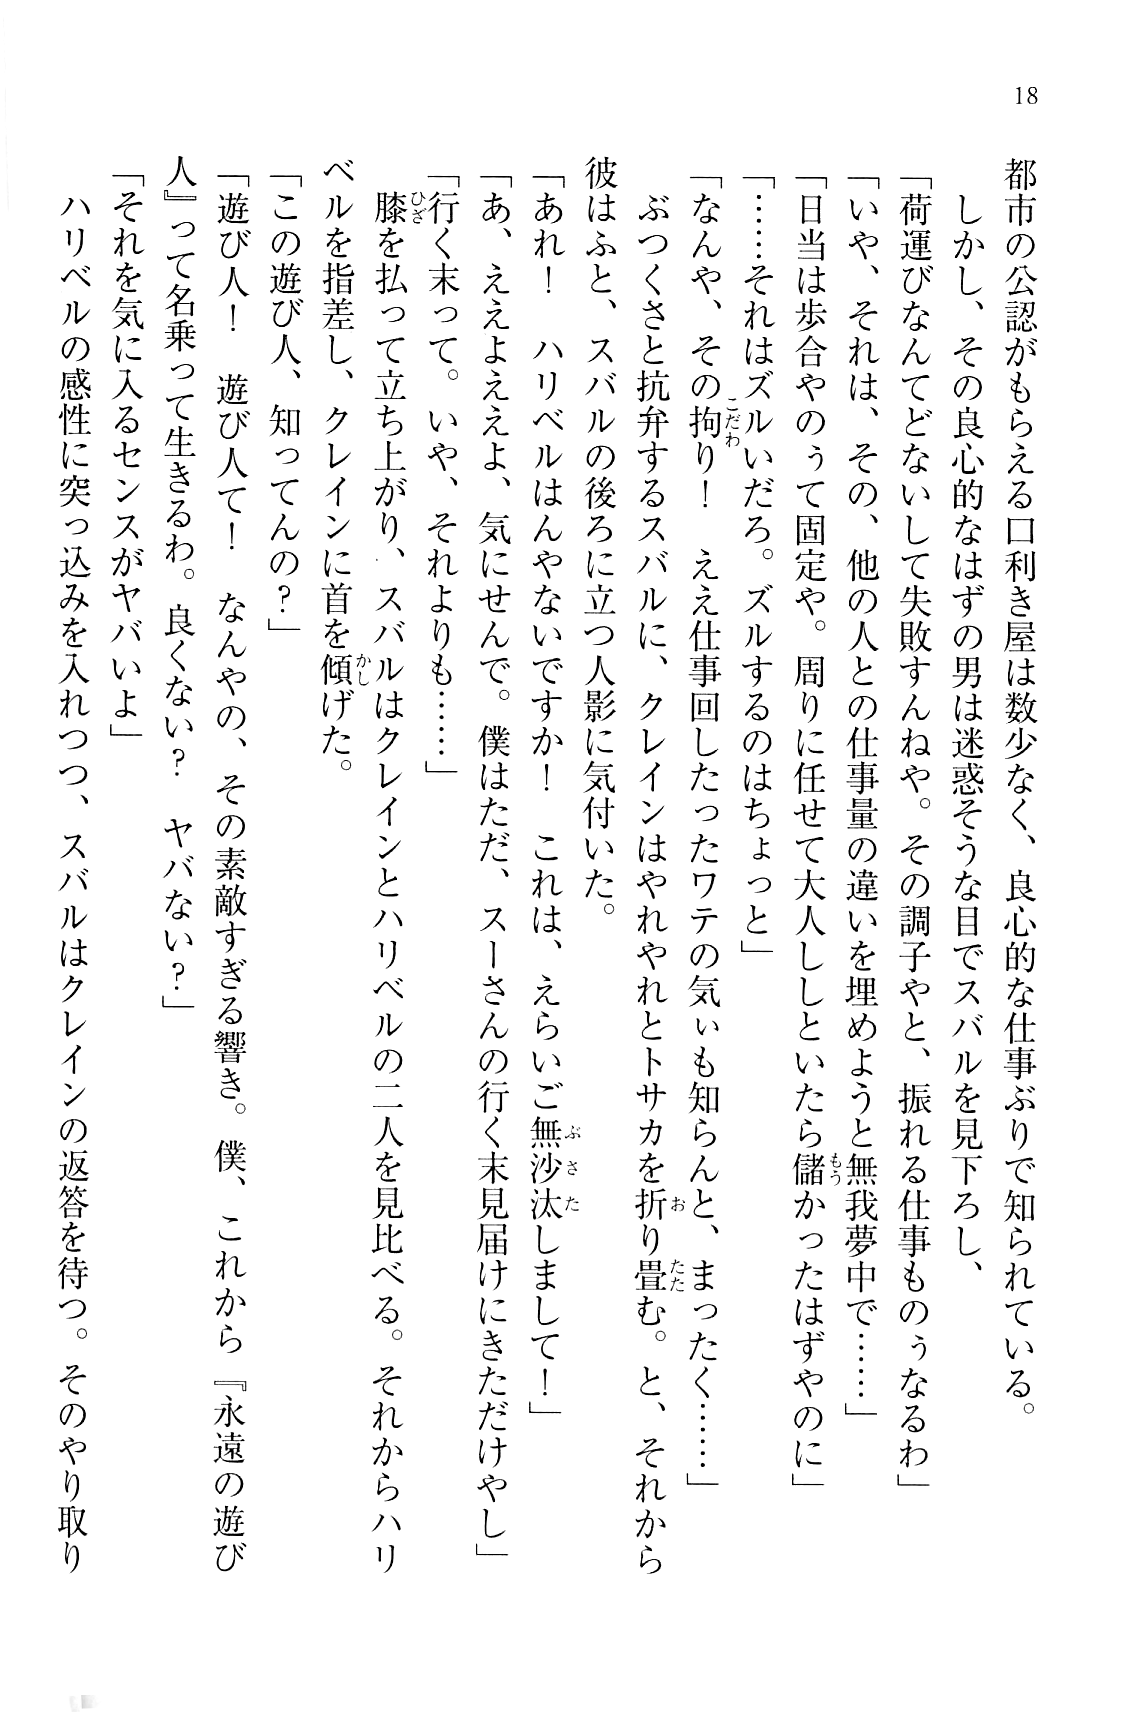 18
都市の公認がもらえる口利き屋は数少なく、良心的な仕事ぶりで知られている。
しかし、その良心的なはずの男は迷惑そうな目でスバルを見下ろし、
「荷運びなんてどないして失敗すんねや。その調子やと、振れる仕事ものぅなるわ」
「いや、それは、その、他の人との仕事量の違いを埋めようと無我夢中で……」
「日当は歩合やのぅて固定や。周りに任せて大人ししといたら儲かったはずやのに」
「……それはズルいだろ。ズルするのはちょっと」
「なんや、その拘り！　ええ仕事回したったワテの気ぃも知らんと、まったく……」
ぶつくさと抗弁するスバルに、クレインはやれやれとトサカを折り畳む。と、それから
彼はふと、スバルの後ろに立つ人影に気付いた。
「あれ！　ハリベルはんやないですか！　これは、えらいご無沙汰しまして！」
「あ、ええよええよ、気にせんで。僕はただ、スーさんの行く末見届けにきただけやし」
「行く末って。いや、それよりも……」
膝を払って立ち上がり、スバルはクレインとハリベルの二人を見比べる。それからハリ
ベルを指差し、クレインに首を傾げた。
「この遊び人、知ってんの？」
「遊び人！　遊び人て！　なんやの、その素敵すぎる響き。僕、これから『永遠の遊び
人』って名乗って生きるわ。良くない？　ヤバない？」
「それを気に入るセンスがヤバいよ」
ハリベルの感性に突っ込みを入れつつ、スバルはクレインの返答を待つ。そのやり取り